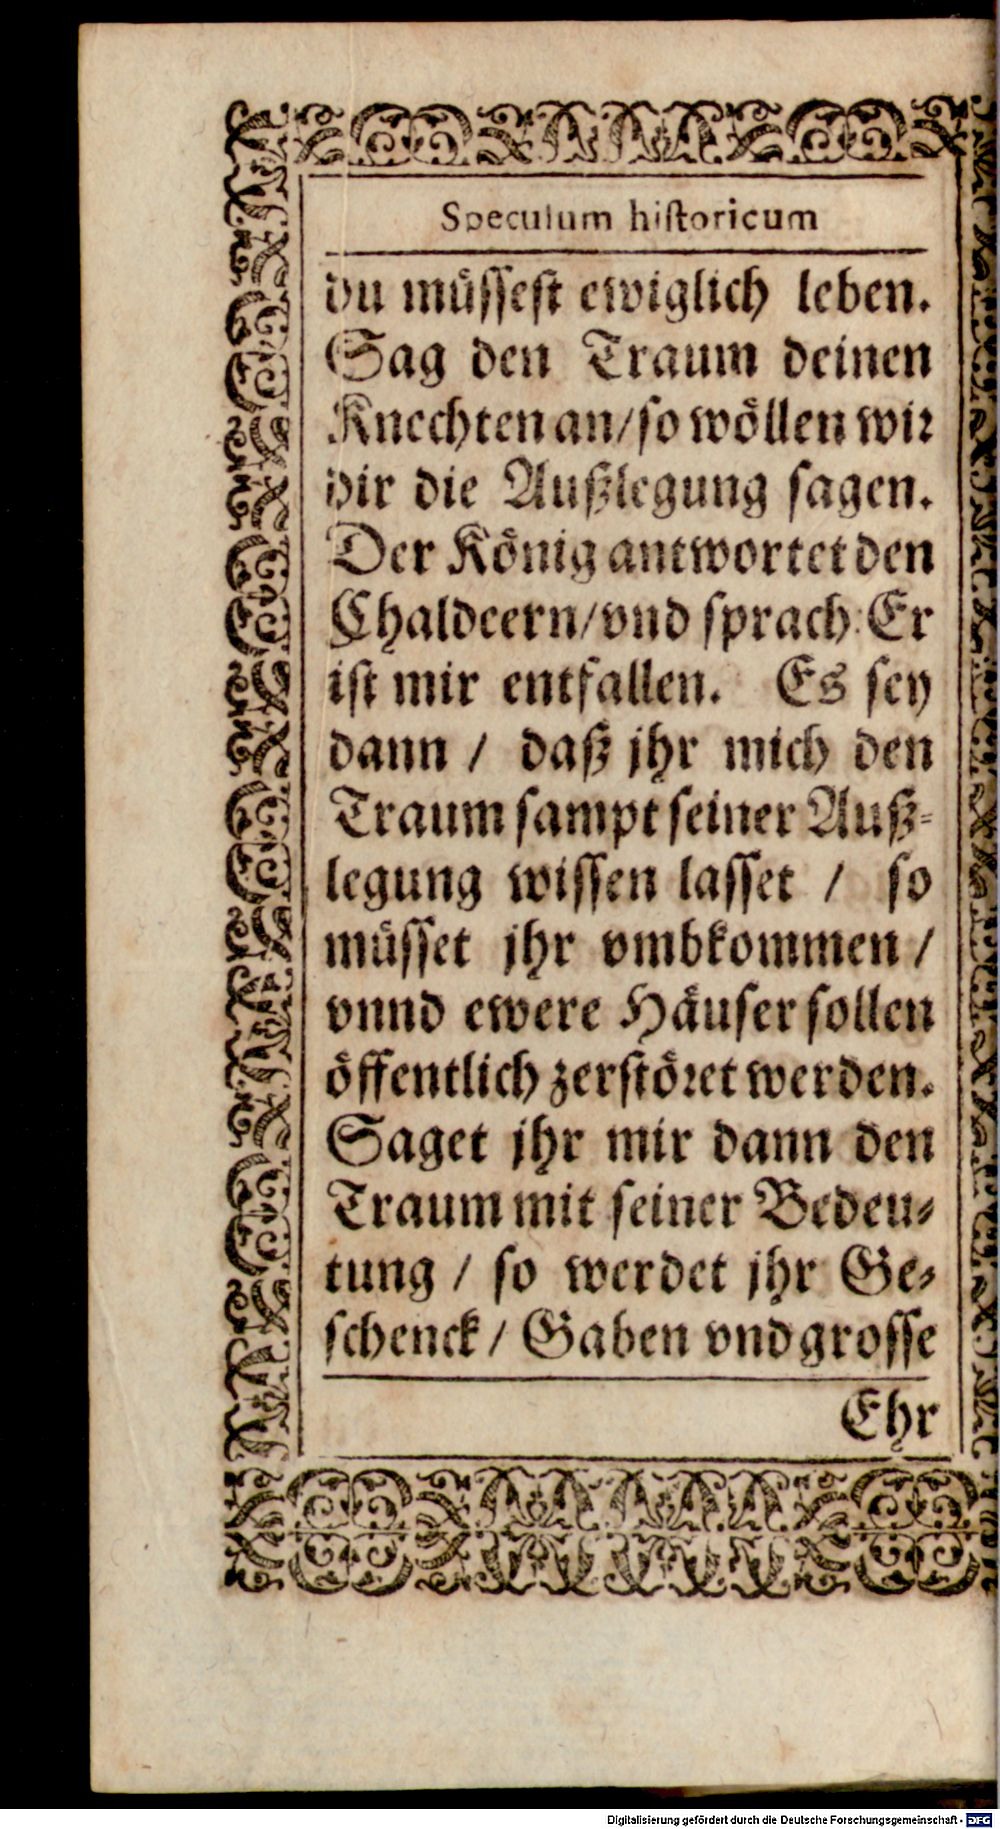 Speculum historicum
du müssest ewiglich leben.
Sag den Traum deinen
Knechten an/so wöllen wir
dir die Außlegung sagen.
Der König antwortet den
Chaldeern/vnd sprach: Er
ist mir entfallen. Es sey
dann / daß jhr mich den
Traum sampt seiner Auß-
legung wissen lasset / so
müsset jhr vmbkommen /
vnnd ewere Häuser sollen
öffentlich zerstöret werden.
Saget jhr mir dann den
Traum mit seiner Bedeu-
tung / so werdet jhr Ge-
schenck/ Gaben vnd grosse
Ehr
Digitalisierung gefördert durch die Deutsche Forschungsgemeinschaft - DFG